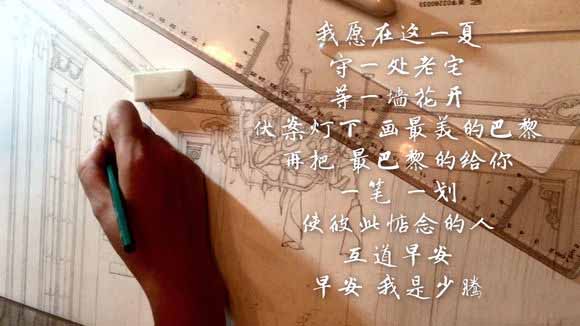 我愿在这一夏
守一处老宅
等一墙花开
伏案灯下 画最美的巴黎
再把 最巴黎的给你
一笔 一划
使彼此惦念的人
互道早安
早安 我是少腾